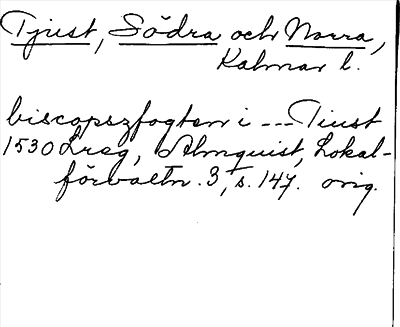 Tjust, Södra och Norra,
Kalmar l.
biscopszfogten i --- Tiust
1530 Lreg, Almquist, Lokal-
förvaltn. 3, s. 147. orig.